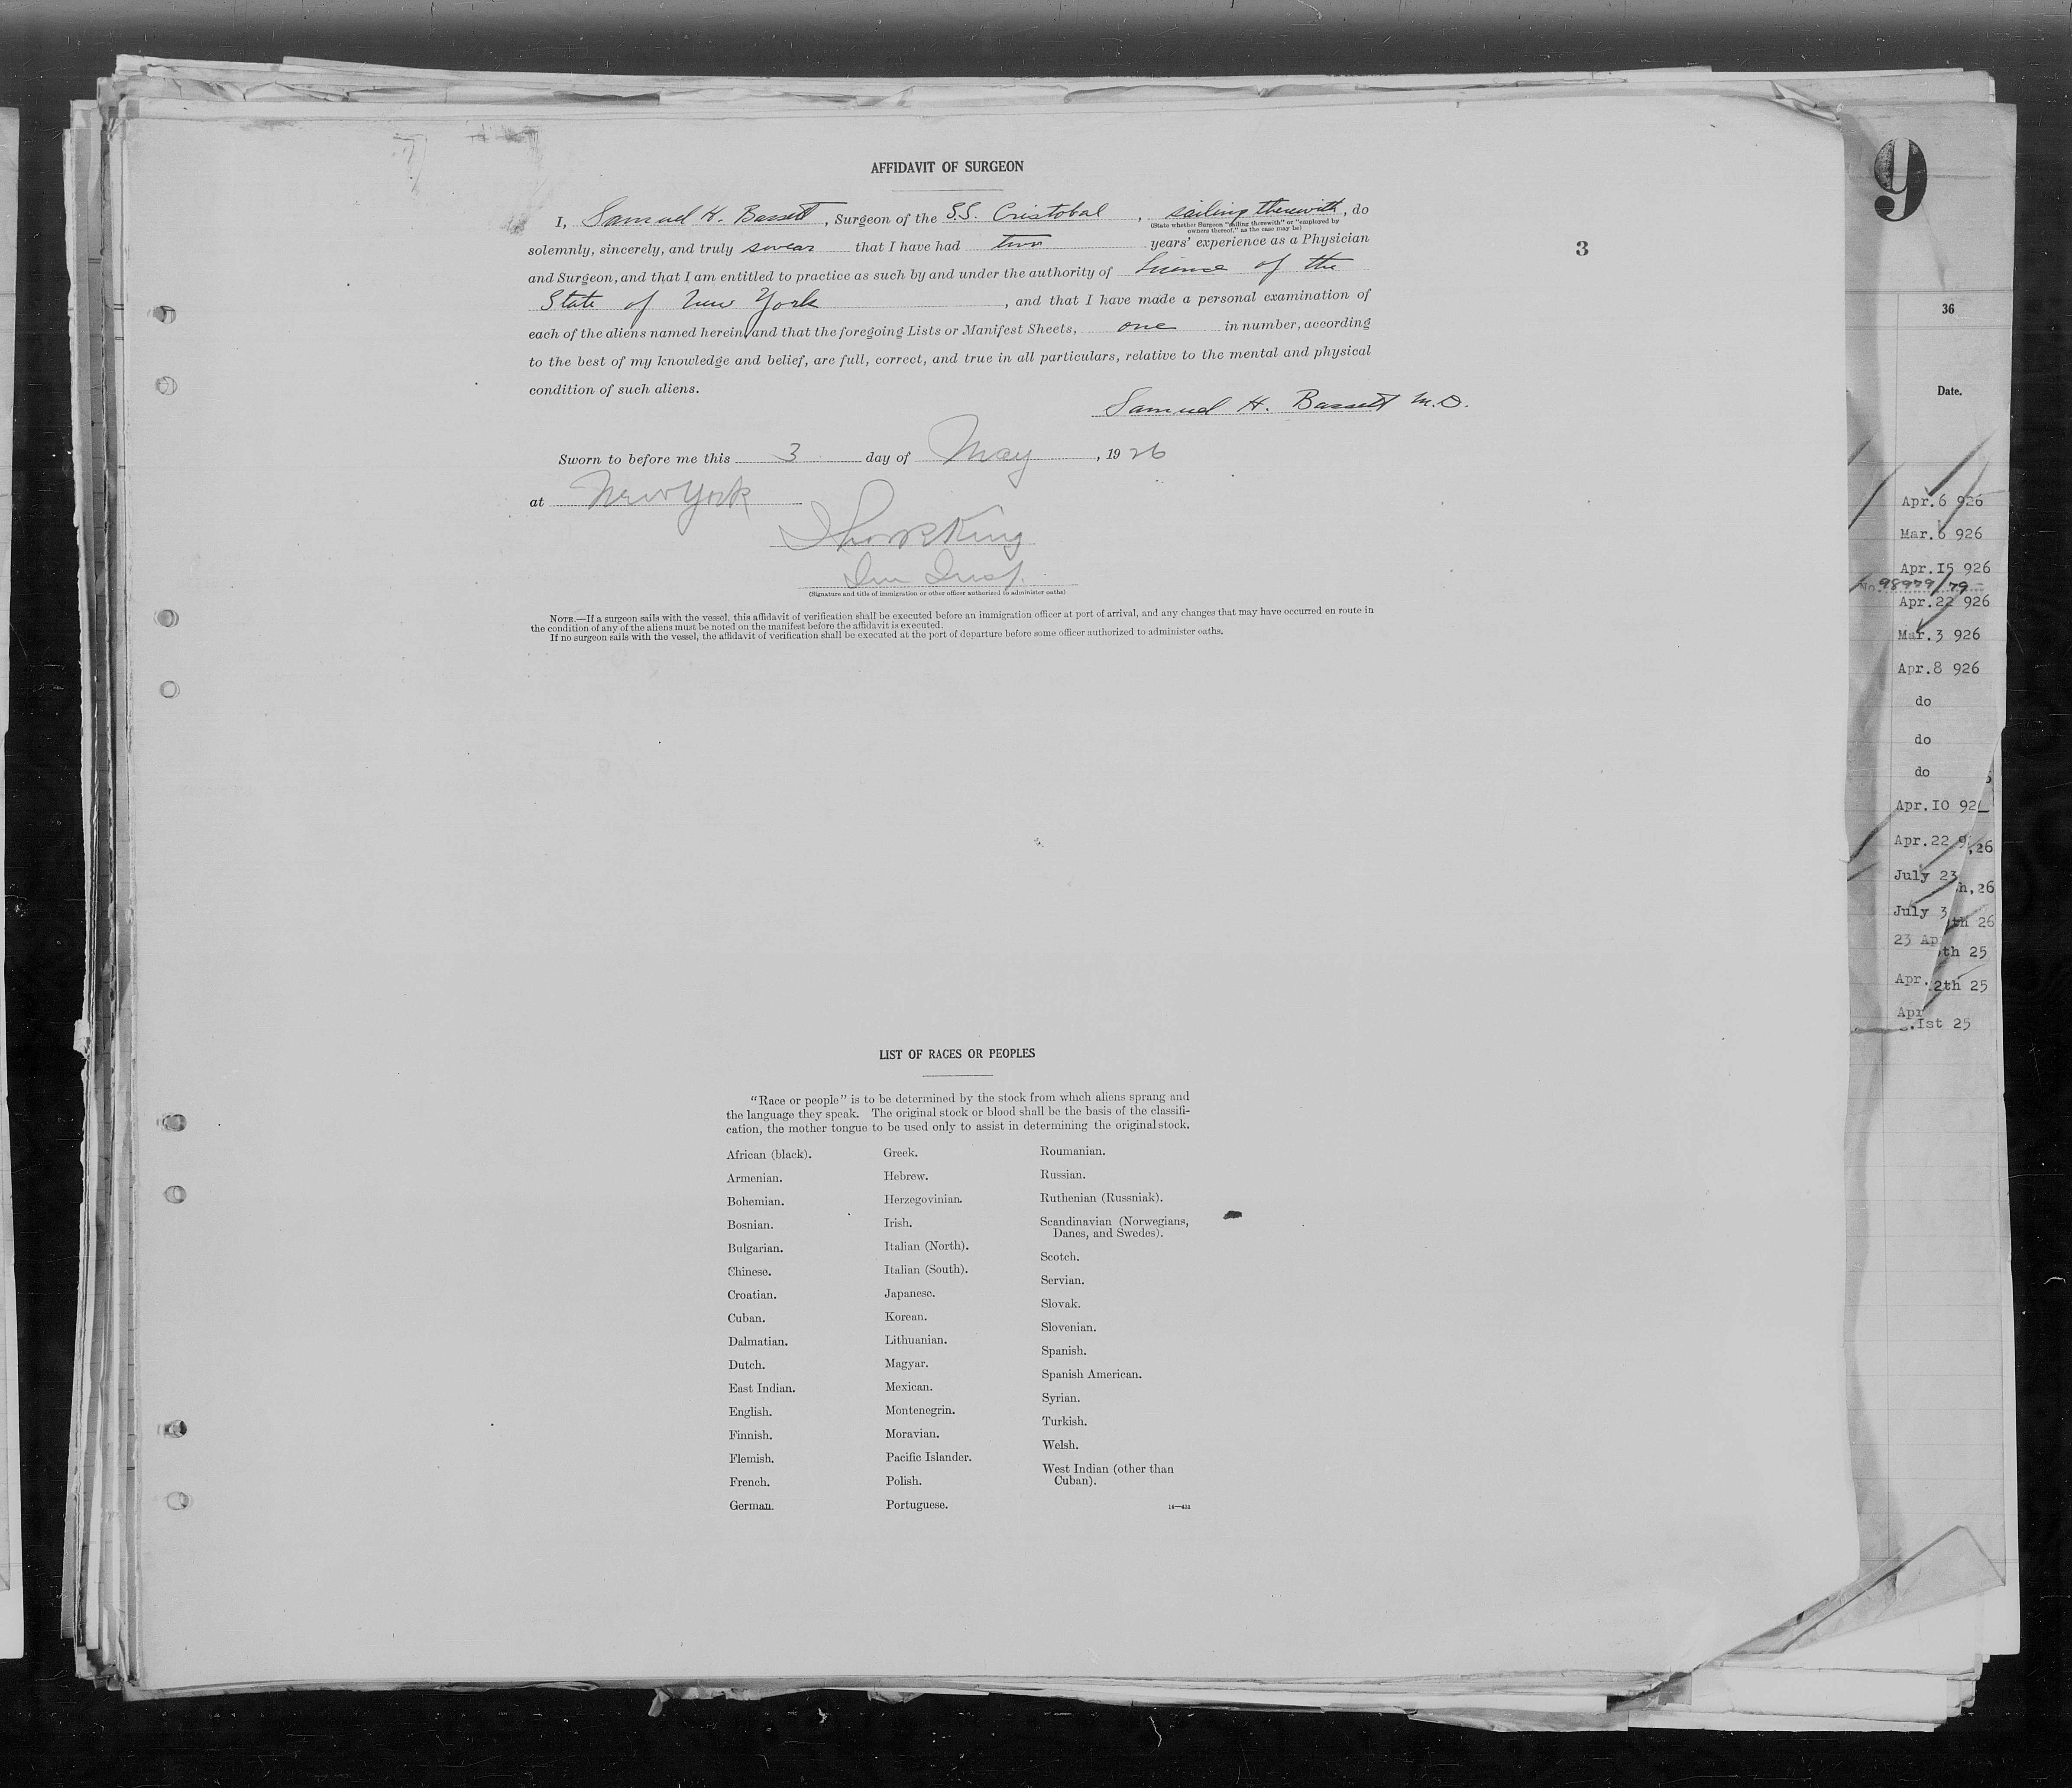 AFFIDAVIT OF SURGEON
I, Samuel H. Bassett, Surgeon of the S.S. Cristobal, sailing therewith, do
(State whether Surgeon "sailing therewith" or "employed by
owners thereof," as the case may be)
solemnly, sincerely, and truly swear that I have had two years' experience as a Physician
and Surgeon, and that I am entitled to practice as such by and under the authority of license of the
State of New York, and that I have made a personal examination of
each of the aliens named herein, and that the foregoing Lists or Manifest Sheets, one in number, according
to the best of my knowledge and belief, are full, correct, and true in all particulars, relative to the mental and physical
condition of such aliens.
Samuel H. Bassett M.D.
Sworn to before me this 3 day of May, 1926
at New York
King
Im Insp.
(Signature and title of immigration or other officer authorized to administer oaths)
NOTE.—If a surgeon sails with the vessel, this affidavit of verification shall be executed before an immigration officer at port of arrival, and any changes that may have occurred en route in
the condition of any of the aliens must be noted on the manifest before the affidavit is executed.
If no surgeon sails with the vessel, the affidavit of verification shall be executed at the port of departure before some officer authorized to administer oaths.
3
LIST OF RACES OR PEOPLES
"Race or people" is to be determined by the stock from which aliens sprang and
the language they speak. The original stock or blood shall be the basis of the classifi-
cation, the mother tongue to be used only to assist in determining the original stock.
African (black).
Armenian.
Bohemian.
Bosnian.
Bulgarian.
Chinese.
Croatian.
Cuban.
Dalmatian.
Dutch.
East Indian.
English.
Finnish.
Flemish.
French.
German.
Greek.
Hebrew.
Herzegovinian.
Irish.
Italian (North).
Italian (South).
Japanese.
Korean.
Lithuanian.
Magyar.
Mexican.
Montenegrin.
Moravian.
Pacific Islander.
Polish.
Portuguese.
Roumanian.
Russian.
Ruthenian (Russniak).
Scandinavian (Norwegians,
Danes, and Swedes).
Scotch.
Servian.
Slovak.
Slovenian.
Spanish.
Spanish American.
Syrian.
Turkish.
Welsh.
West Indian (other than
Cuban).
14—431
9
36
Date.
Apr.6 926
Mar.6 926
Apr.I5 926
No. 98979/79
Apr.22 926
Mar.3 926
Apr.8 926
do
do
do
Apr.IO 92
Apr.22 9
,26
July 23
h,26
July 3
th 26
23 Ap
th 25
Apr.
2th 25
Apr
.Ist 25